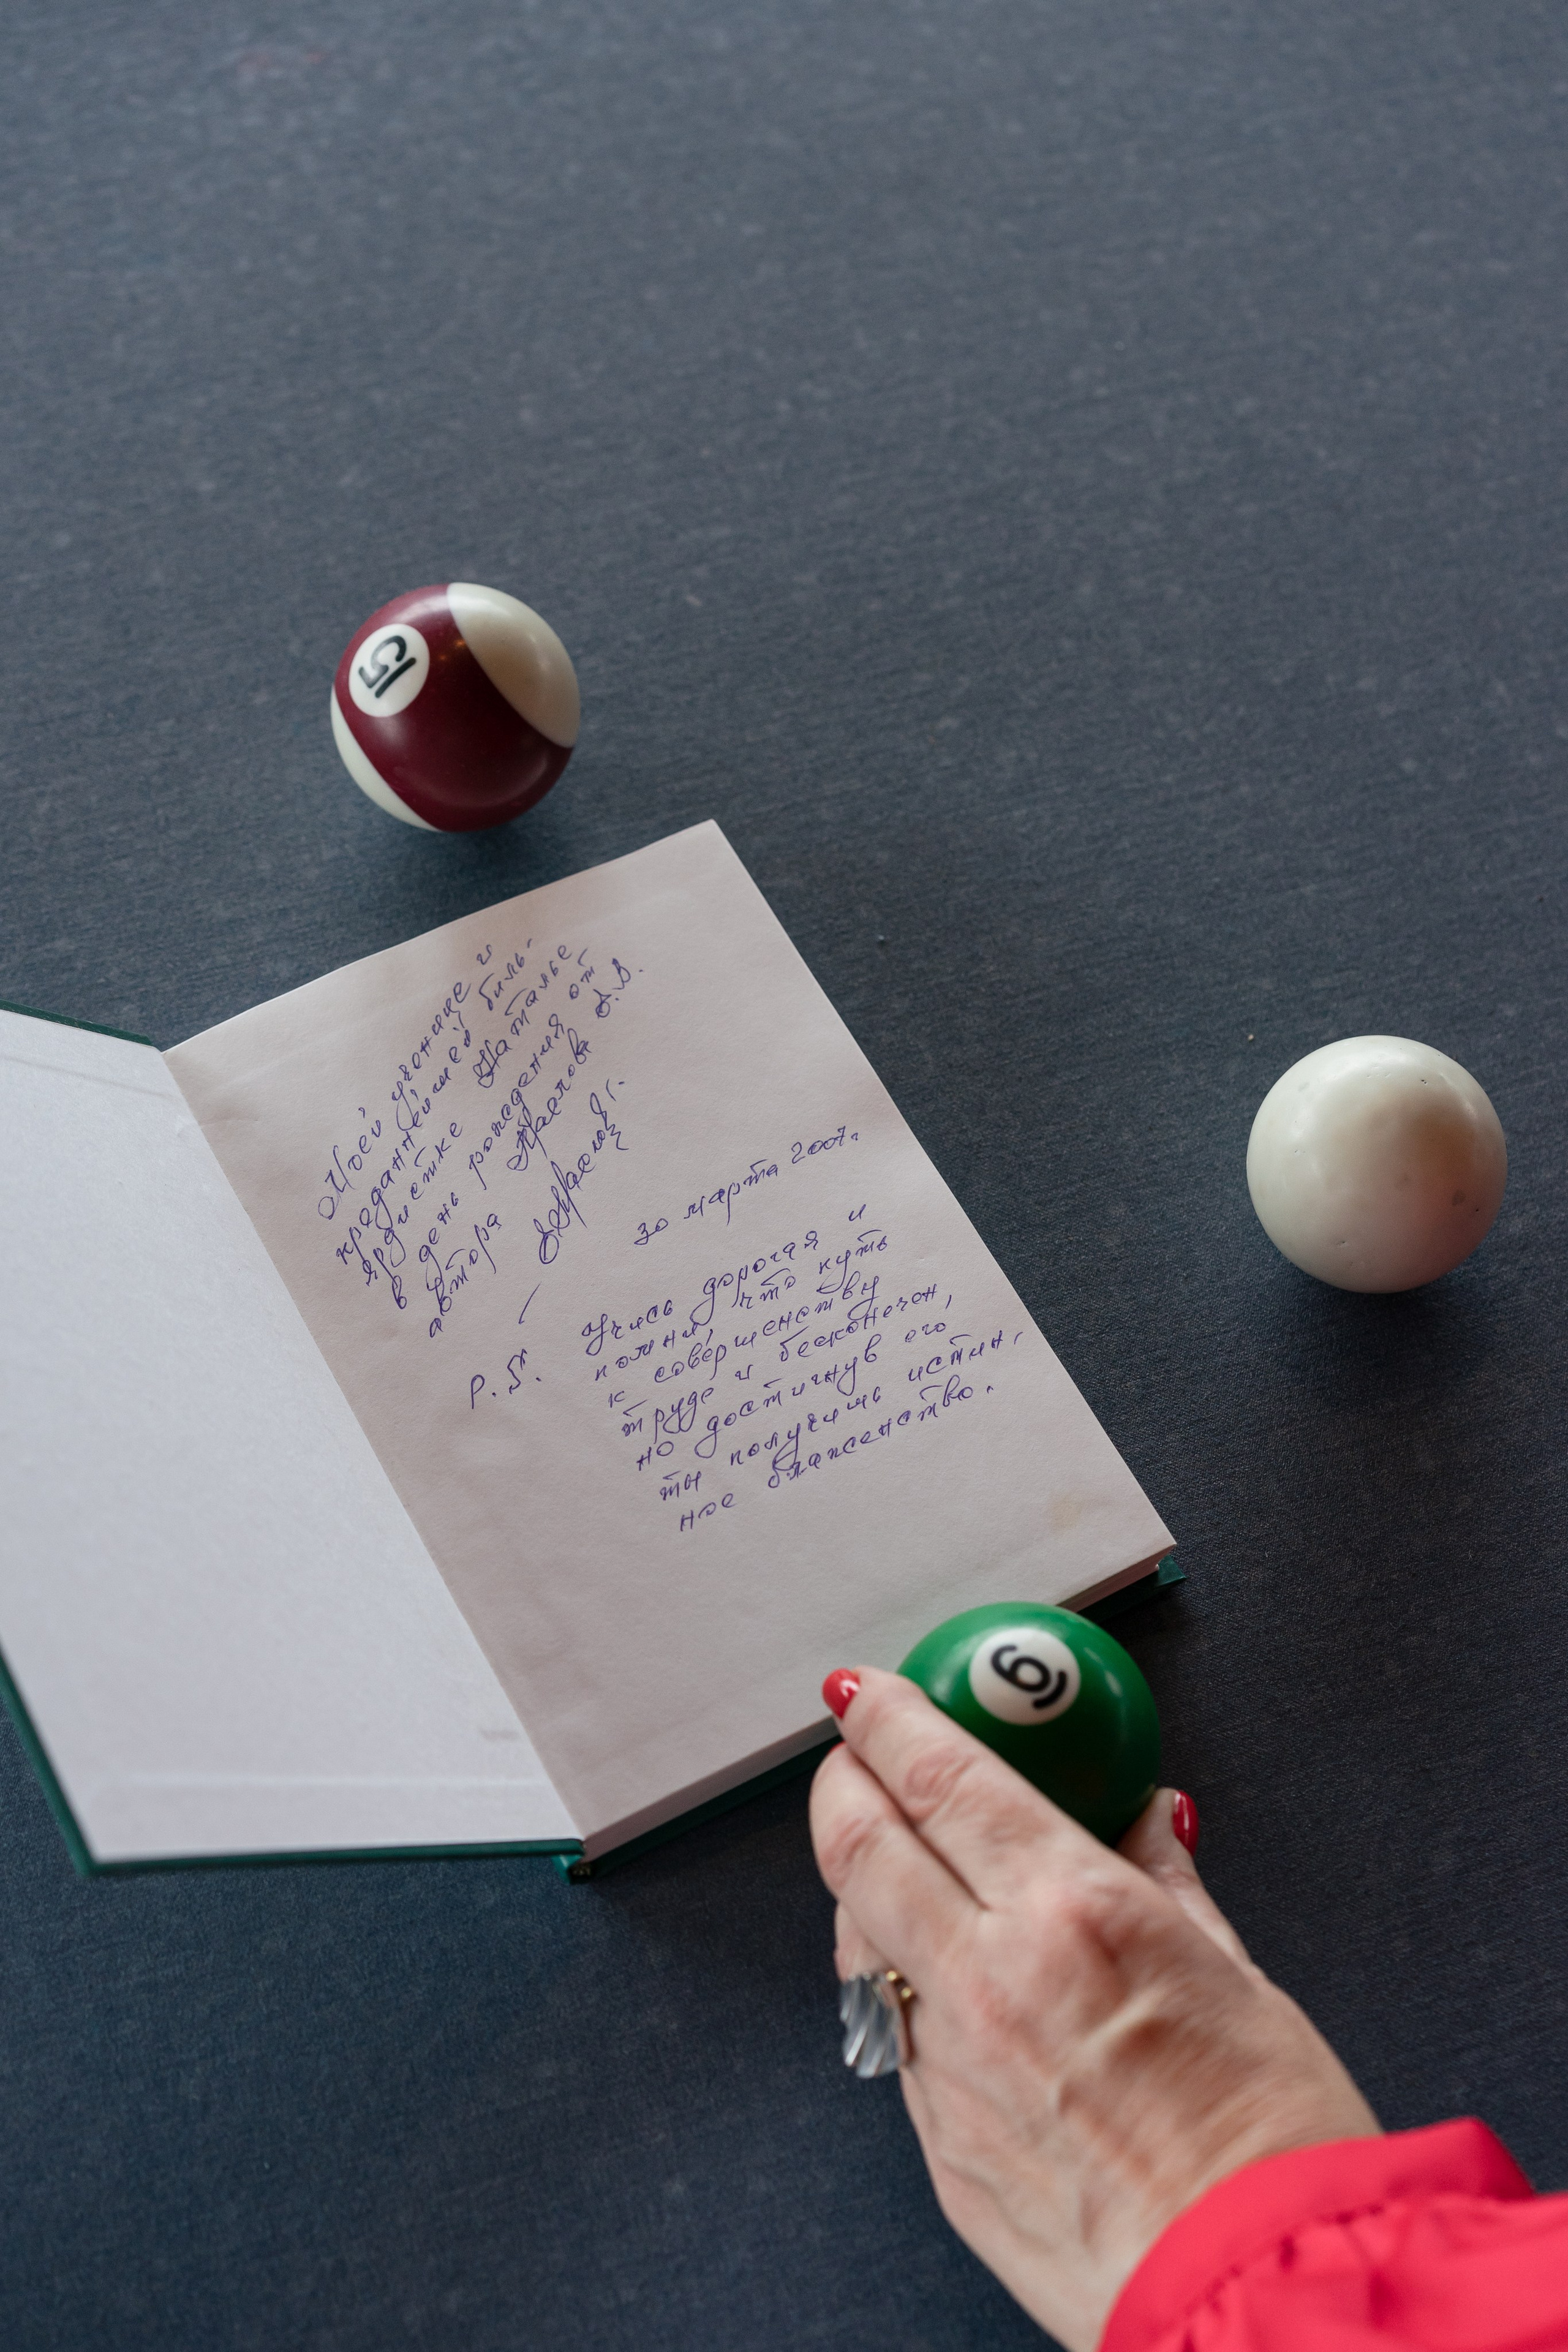 15
Моей ученице и
преданнейшей биль-
ярдистке Наталье
в день рождения от
автора
А.В.
30 марта 2007г.
P.S. Учись дорогая и
помни, что путь
к совершенству
труде и бесконечен,
но достигнув его
ты получишь истин,
ное блаженство.
6